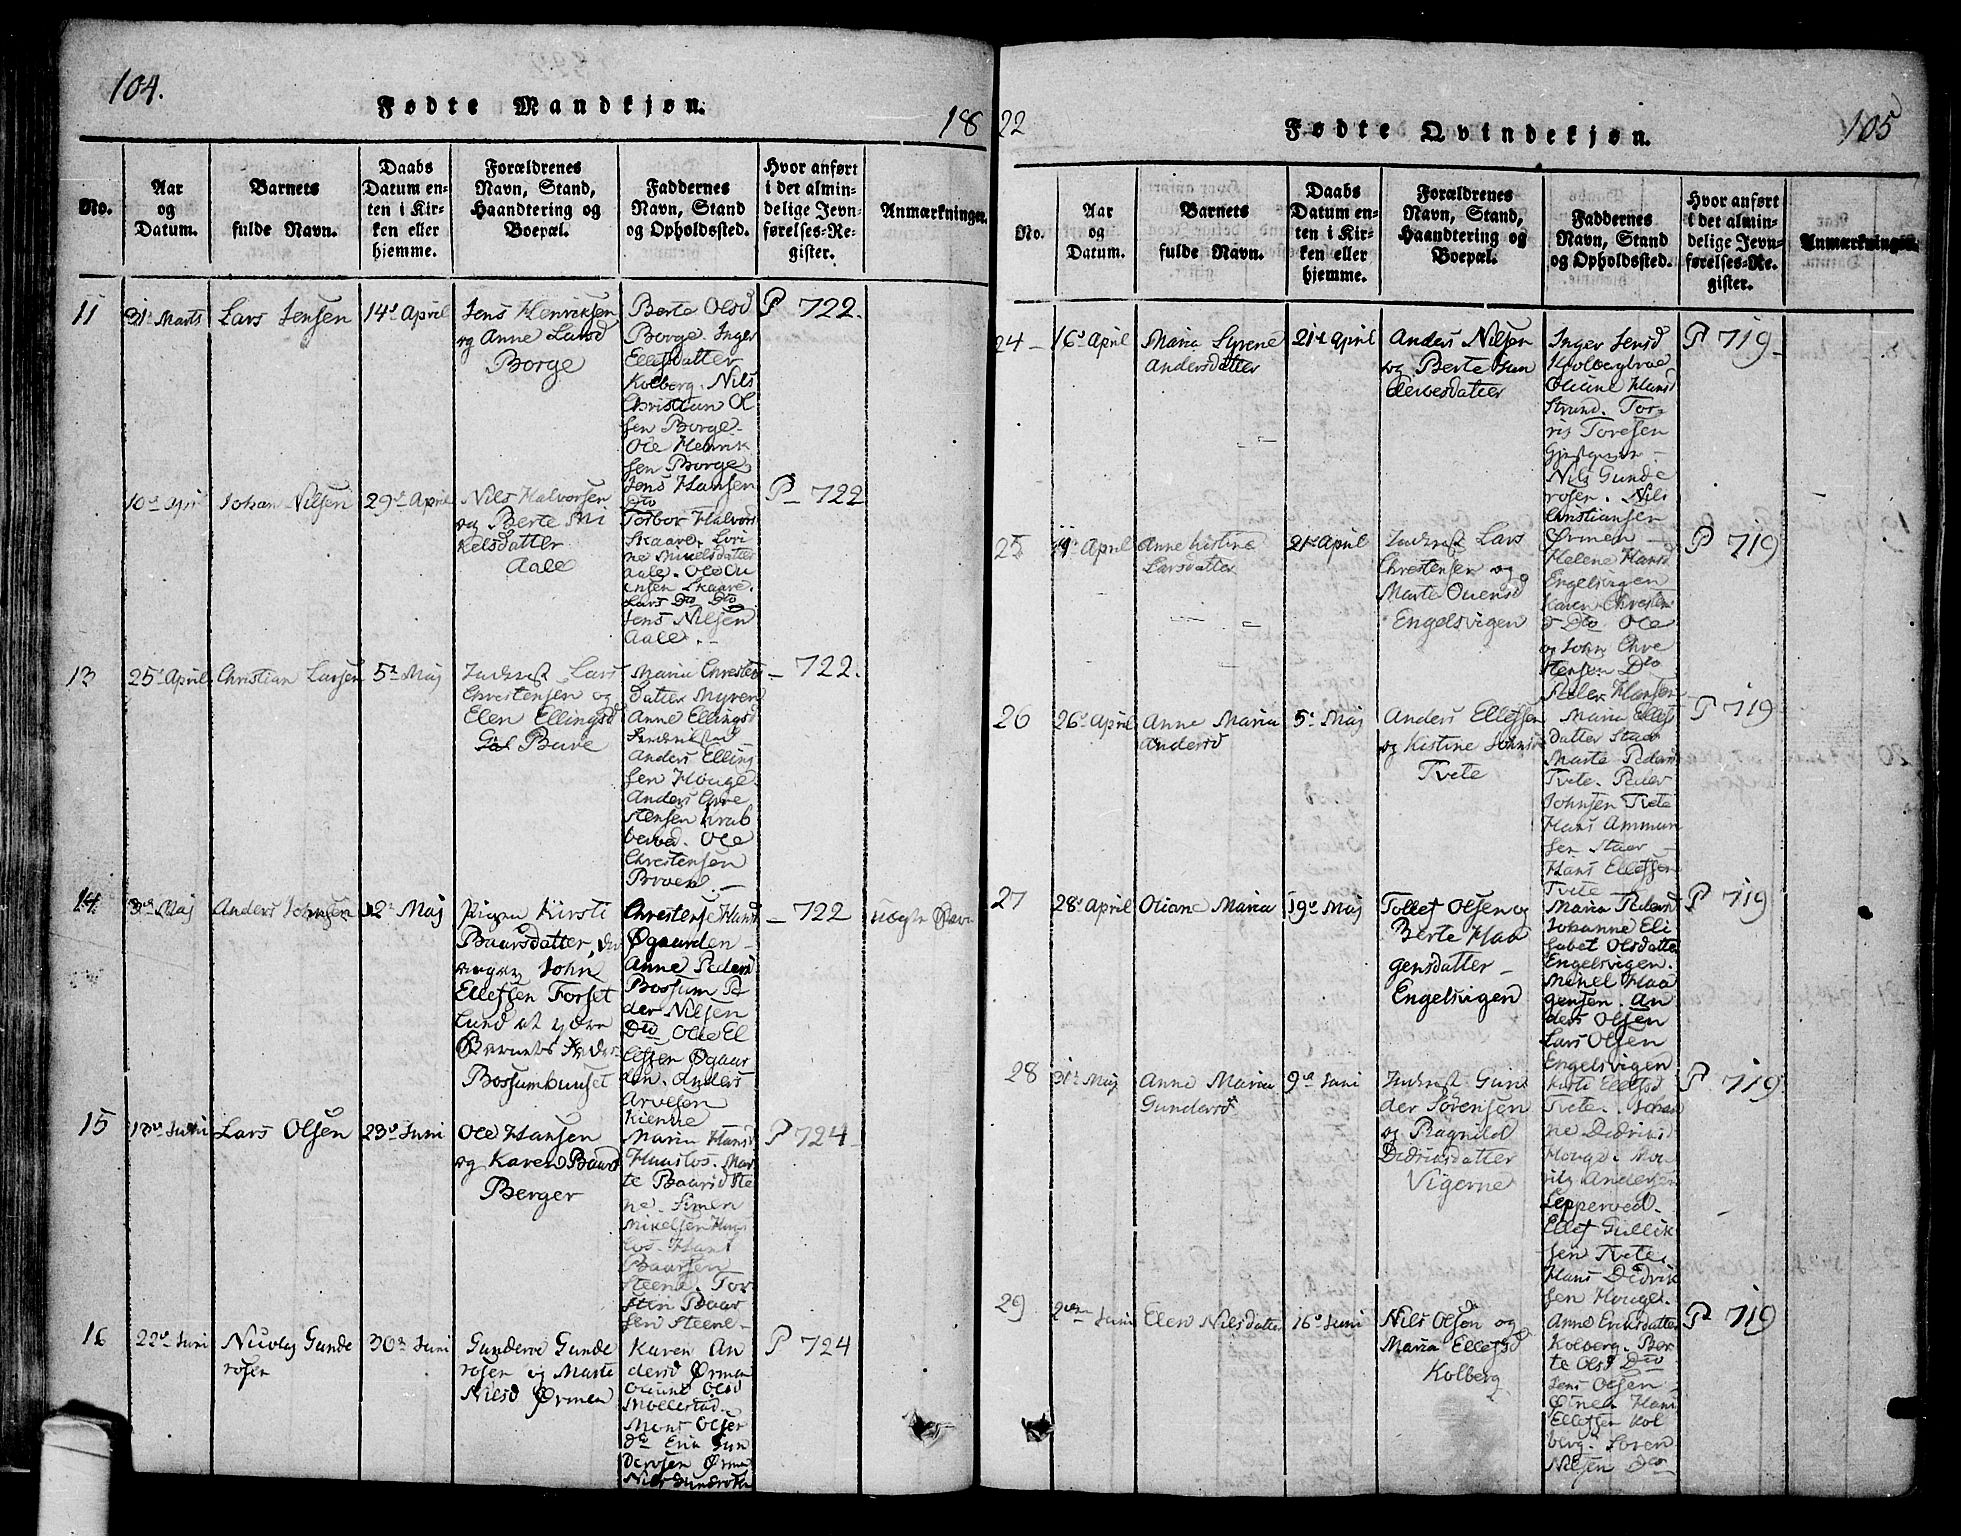 104.
Fødte Mandkjøn.
18
No.
Aar
og
Datum.
Barnets
fulde Navn.
Daabs
Datum en-
ten i Kir-
ken eller
hjemme.
Forældrenes
Navn, Stand,
Haandtering og
Boepæl.
Faddernes
Navn, Stand
og Opholdssted.
Hvor anført
i det almin-
delige Jevn-
førelses-Re-
gister.
Anmærkninger.
11
31 Marts
Lars Jensen
14de April
Jens Henriksen
og Anne Larsd
Borge
Berte Olsd
Borge. Inger
Ellefsdatter
Kolberg. Nils
Christian Ol
sen Borge.
Ole Henrik
sen Borge
Jens Hansen
Dto
P 722.
10de April
Johan Nilsen
29de April
Nils Halvorsen
og Berte Mi
kelsdatter
Aale
Torbor Halvors
Skaare. Lovi
ne Mikelsdatter
Aale. Ole
Skaare.
Lars Dto Dto
Jens Nilsen
Aale.
P 722
13
25 April
Christian Larsen
5te Maj
Indrest Lars
Christensen og
Elen Ellingsd
Buve
Maria Christens
datter Myren
Anne Ellingsd
Anders Elling
sen Houge
Anders Chre
stensen Krab
berød. Ole
Christensen
Broen.
722.
14
3de Maj
Anders Johnsen
12te Maj
Pigen Kirsti
Baarsdatter,
John
Ellefsen Torset
lund at være
Barnets Fader
Bossumhuuset
Christense Hans
Øgaarden
Anne Peders
Bossum Pe
der Nilsen
Dto Ole El
lefsen Øgaar
den. Anders
Arvesen
Kienne
722
uægte
15
13de Juni
Lars Olsen
23de Juni
Ole Hansen
og Karen Baars
Berger
Maria Hansd
Huuslos. Mar
te Baarsd Ste
ne. Simen
Mikelsen Huus
los. Hans
Baarsen
Steene. Tor
sten Baar
sen Steene
P 724
16
22de Juni
Nicolaj Gunde
rosen
30te Juni
Gundero Gunde
rosen og Marte
Nilsd Ørmen
Karen An
dersd Ørmen
Oliane Olsd
Mollestad.
Mons Olsen
Do Erik Gun
derosen Ørmen
Nils Gunderosen
P 724
22
Fødte Qvindekjøn.
105
No.
Aar
og
Datum.
Barnets
fulde Navn.
Daabs
Datum en-
ten i Kir-
ken eller
hjemme.
Forældrenes
Navn, Stand,
Haandtering og
Boepæl.
Faddernes
Navn, Stand
og Opholdssted.
Hvor anført
i det almin-
delige Jevn-
førelses-Re-
gister.
Anmærkninger.
24
16de April
Maria Syrene
Andersdatter
21de April
Anders Nilsen
og Berte Gun
derosdatter
Inger Jensd
Kolbergbroe
Oliane Hansd
Strand. Tor-
ris Toresen
Nils Gunde
rosen. Nils
Christiansen
Ørmen
P 719
25
April
Anne Kistine
Larsdatter
21de April
Indrest Lars
Christensen og
Marte Ouensd
Engelsvigen
Helene Hansd
Engelsvigen
Karen Christens
d Dto Ole
og John Chre
stensen Dto
Peder Hansen
P 719
26
26de April
Anne Maria
Andersd
5te Maj
Anders Ellefsen
og Kistine Johnsd
Tvete
Maria Ellefs
datter Staer
Marte Pedersd
Tvete. Peder
Johnsen Tvete
Hans Ammun
sen Staer
Hans Ellefsen
Tvete
P 719
27
28de April
Oliane Maria
19de Maj
Tollef Olsen og
Berte Haa
gensdatter
Engelsvigen
Maria Pedersd
Johanne Eli
sabet Olsdatter
Engelsvigen.
Mikel Haa
gensen. An
ders Olsen
Lars Olsen
Engelsvigen
P 719
28
31te Maj
Anne Maria
Gundersd
9de Juni
Indrest Gun
der Sørensen
og Ragnild
Didriksdatter
Vigerne
Kirsti Ellefsd
Tvete. Johan
ne Didriksd
Houge. Mou
ritz Andersen
Lepperød.
Ellef Gullik
sen Tvete.
Hans Didrik
sen Houge.
P 719
29
2den Juni
Elen Nilsdatter
16de Juni
Nils Olsen og
Maria Ellefsd
Kolberg
Anne Eriksdatter
Kolberg. Ber
te Olsd Dto
Jens Olsen
Hans
Ellefsen Kol
berg. Soren
Nilsen Dto
P 719